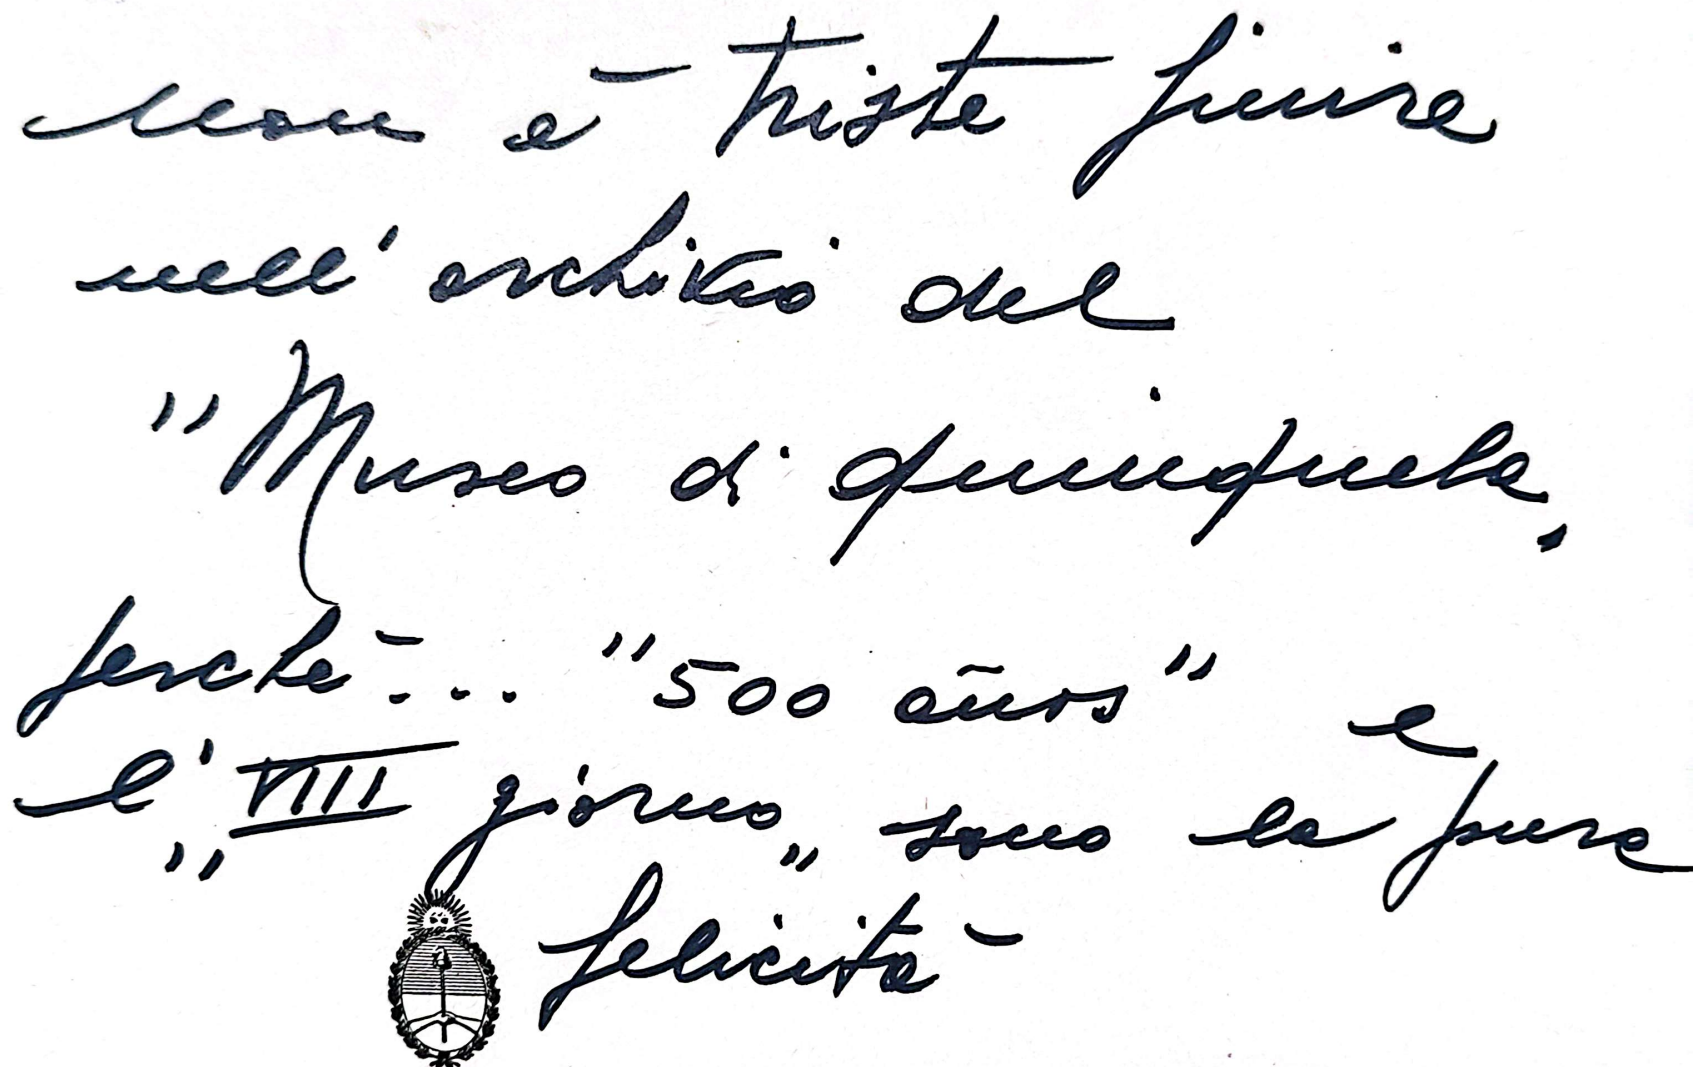 Non è triste finire
nell'archivio del
"Museo di Quinquela"
perchè... "500 años" e
l'"VIII giorno" sono la pura
felicità